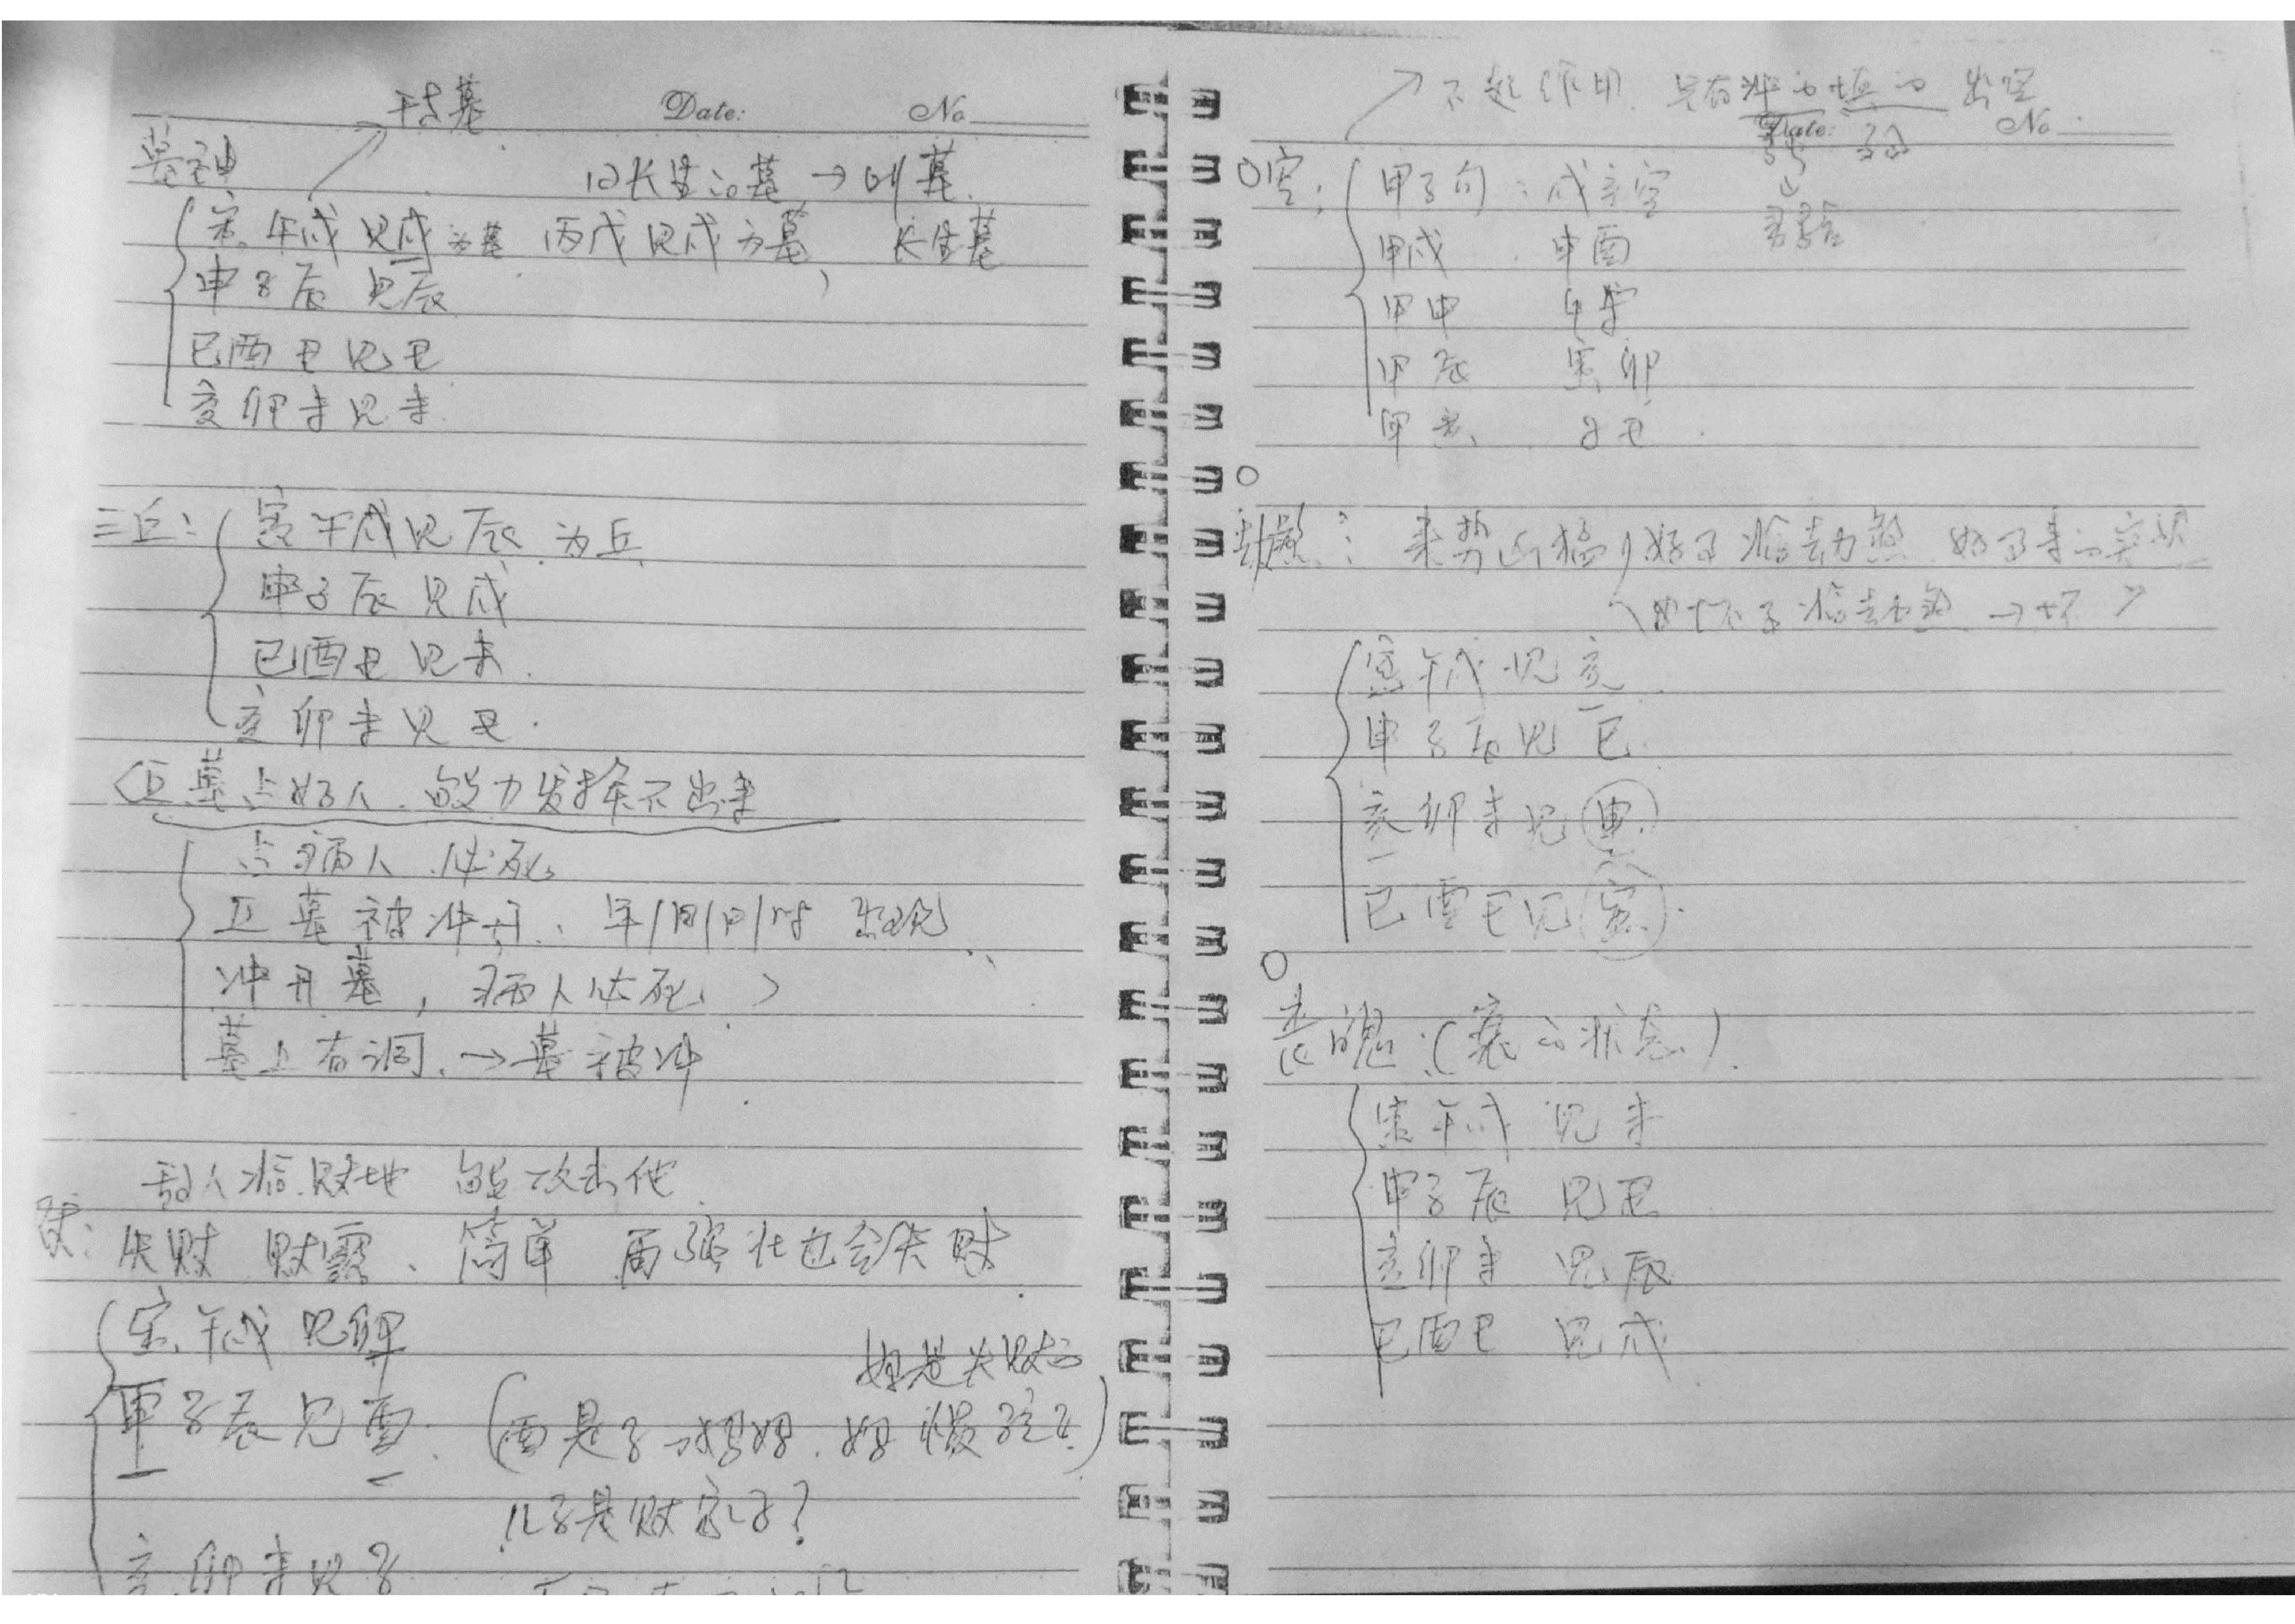 干支墓
Date:
No
墓神
12长生的墓 → 叫墓
寅午戌 见戌为墓 丙戌见戌为墓, 长生墓
申子辰 见辰
巳酉丑见丑
亥卯未见未
三丘: 寅午戌见辰 为丘
申子辰见戌
巳酉丑见未
亥卯未见丑
丘墓占好人.能力发挥不出来
占病人.必死
丘墓被冲开、年/月/日/时 出现
冲开墓,病人必死
墓上有洞.→墓被冲
敌人临败地 能攻击他
败: 失财 财露、简单 再强壮也会失财
寅午戌见卯
申子辰见酉. (酉是子的妈妈.
儿子是败家子?
亥卯未见子
不起作用. 只有冲的填的 出空
Date:
No
空: 甲子旬: 戌亥空
甲戌 申酉
甲申 午未
甲辰 寅卯
甲寅 子丑
劫煞: 来势凶猛 好事临劫煞 好事来的突然
坏事临劫煞 → 坏
寅午戌见亥
申子辰见巳
亥卯未见申
巳酉丑见寅
丧魄:(衰的状态)
寅午戌 见未
申子辰 见丑
亥卯未 见辰
巳酉丑 见戌